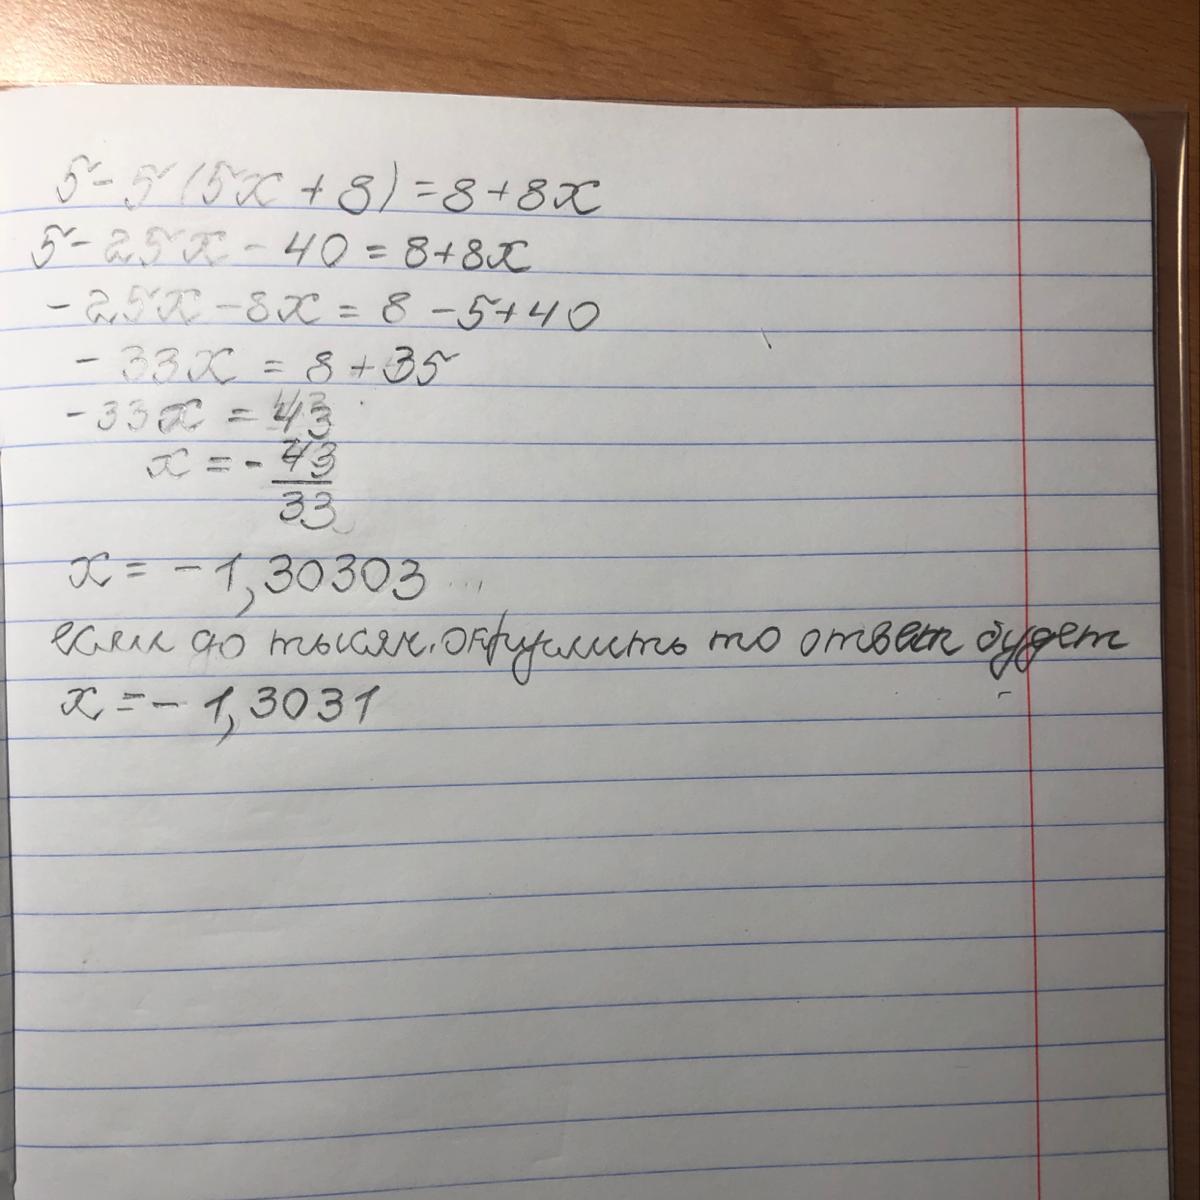 5-5(5x+8)=8+8x
5-25x-40=8+8x
-25x-8x=8-5+40
-33x=8+35
-33x=43
x=-43/33
x=-1,30303...
если до тысяч. округлить то ответ будет
x=-1,3031